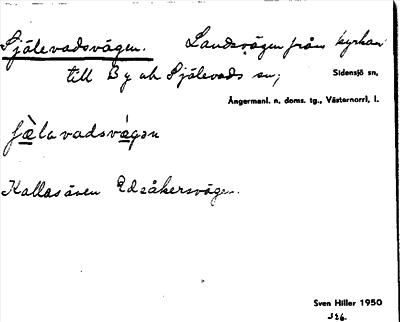 Själevadsvägen. Landsvägen från kyrkan
till By och Själevads sn;
Sidensjö sn,
Ångermanl. n. doms. tg., Västernorrl, l.
ʃæ̀lavadsvägən
Kallas även Edsåkersvägen.
Sven Hiller 1950